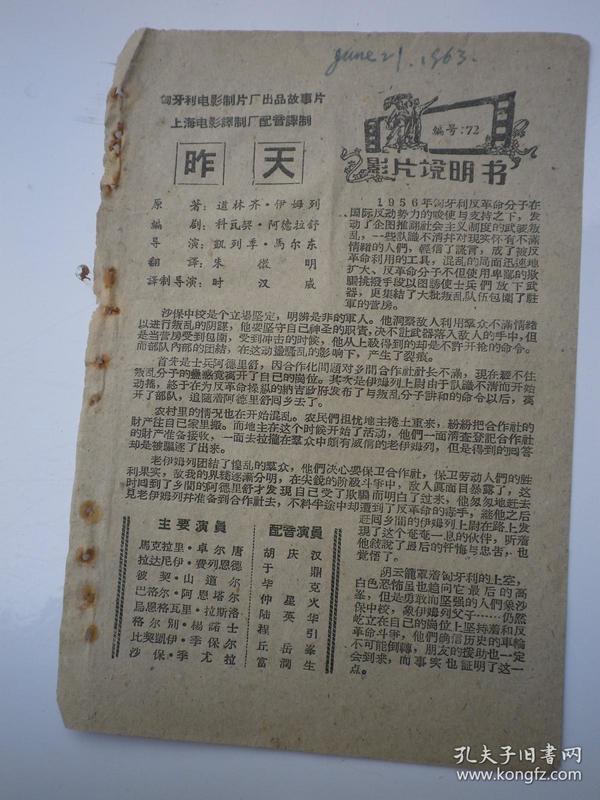 june 21. 1963.
匈牙利电影制片厂出品故事片
上海电影譯制厂配音譯制
昨天
編号:72
影片説明书
原著:道林齐·伊姆列
編剧:科瓦契·阿德拉舒
导演:凱列季·馬尔东
翻譯:朱 微 明
譯制导演:时 汉 威
1956年匈牙利反革命分子在
国际反动势力的唆使与支持之下，发
动了企图推翻社会主义制度的武装叛
乱，一些認識不清并对现实怀有不滿
情緒的人們，輕信了謊言，成了被反
革命利用的工具，混乱的局面迅速地
扩大、反革命分子不但使用卑鄙的欺
騙挑撥手段以图誘使士兵們放下武
器，更集結了大批叛乱队伍包圍了駐
軍的营房。
沙保中校是个立場坚定，明辨是非的軍人。他洞察敌人利用羣众不滿情緒
以进行叛乱的阴謀，他要坚守自己神圣的职責，决不让武器落入敌人的手中，但
是当营房受到包圍，受到冲击的时候，他从上級得到的却是不許开槍的命令。
而部队内部的团結，在这动盪騷乱的影响下，产生了裂痕。
首先是士兵阿德里舒，因合作化問題对乡間合作社社长不滿，現在經不住
叛乱分子的蠱惑竟离开了自己的崗位。其次是伊姆列上尉由于認識不清而开始
动搖，終于在为反革命操纵的納吉政府发布了与叛乱分子詳和的命令以后，离
开了部队，追随着阿德里舒回乡去了。
农村里的情况也在开始混乱。农民們担忧地主捲土重来，紛紛把合作社的
財产往自己家里搬。而地主在这个时候开始了活动，他們一面清查登記合作社
的財产准备接收，一面去拉攏在羣众中頗有威信的老伊姆列，但是得到的回答
却是被驅逐了出来。
老伊姆列团結了惶乱的羣众，他們决心要保卫合作社，保卫劳动人們的胜
利果实，敌我的界綫逐漸分明，在尖銳的阶級斗爭中，敌人眞面目暴露了，这
时回到了乡間的阿德里舒才发现自己受了欺騙而明白了过来，他匆匆地赶去
見老伊姆列并准备到合作社去，不料半途中却遭到了反革命的毒手，継他之后
赶回乡間的伊姆列上尉在路上发
现了这个奄奄一息的伙伴，听着
他敘說了最后的忏悔与忠告，也
覚悟了。
阴云籠罩着匈牙利的上空，
白色恐怖虽也趋向它最后的高
峯，但是勇敢而坚强的人們象沙
保中校，象伊姆列父子……仍然
屹立在自己的崗位上坚持着和反
革命斗爭，他們确信历史的車輪
不可能倒轉，朋友的援助也一定
会到来，而事实也証明了这一
点。
主要演員
馬克拉里·卓尔唐
拉达尼伊·費列恩德
彼契·山道尔
巴格尔·阿恩塔尔
局恩格瓦里·拉斯洛
格尔別·楊諾士
比契凱伊·季保尔
沙保·季尤拉
配音演員
胡庆汉
于鼎
毕克
仲星火
陆英华
程引
丘岳峯
富潤生
孔夫子旧書网
www.kongfz.com